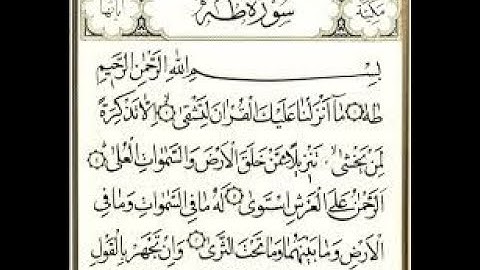 مكية سُورَةُ طٰهٰ آياتها
بِسْمِ اللّٰهِ الرَّحْمٰنِ الرَّحِيمِ
طٰهٰ ۝ مَٓا اَنْزَلْنَا عَلَيْكَ الْقُرْاٰنَ لِتَشْقٰى ۝ اِلَّا تَذْكِرَةً
لِمَنْ يَخْشٰى ۝ تَنْزِيلًا مِمَّنْ خَلَقَ الْاَرْضَ وَالسَّمٰوَاتِ الْعُلٰى ۝
اَلرَّحْمٰنُ عَلَى الْعَرْشِ اسْتَوٰى ۝ لَهُ مَا فِي السَّمٰوَاتِ وَمَا فِي
الْاَرْضِ وَمَا بَيْنَهُمَا وَمَا تَحْتَ الثَّرٰى ۝ وَاِنْ تَجْهَرْ بِالْقَوْلِ